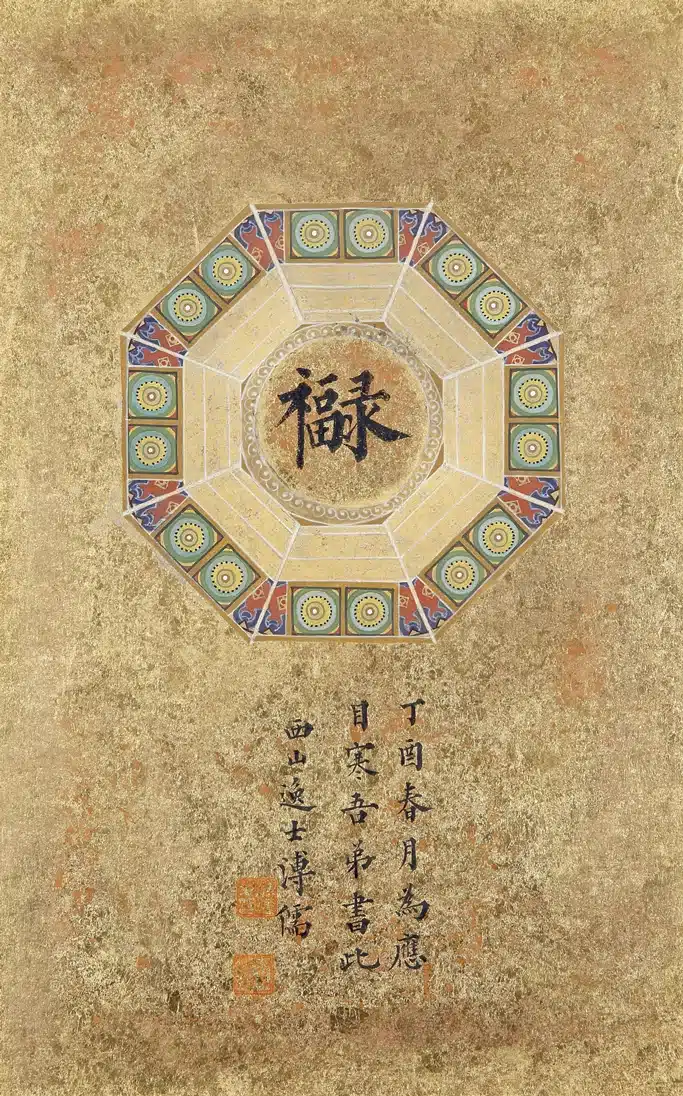 福录
丁酉春月為應
目寒吾弟書此
西山逸士溥儒